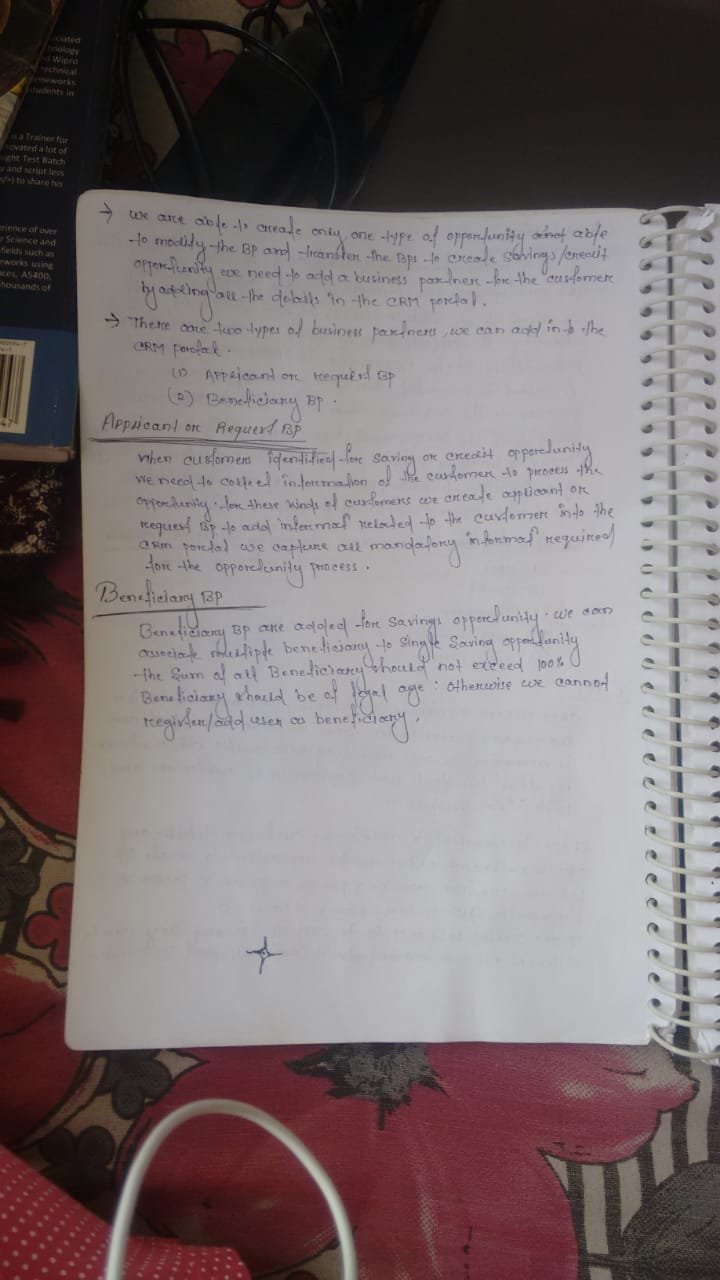 ciated
hnology
d Wipro
technical
meworks
tudents in
is a Trainer for
novated a lot of
ght Test Batch
y and script less
/>) to share his
rience of over
r Science and
fields such as
eworks using
ces, AS400,
housands of
→ we are able to create only one type of opportunity able
to modify the BP and transfer the BPs to create savings/credit
opportunity we need to add a business partner for the customer
by adding all the details in the CRM portal.
→ There are two types of business partners, we can add into the
CRM portal.
(1) Applicant or request BP
(2) Beneficiary BP.
Applicant or Request BP
When customers identified for saving or credit opportunity
we need to collect information of the customer to process the
opportunity. for these kinds of customers we create applicant or
request BP to add informat related to the customer into the
CRM portal we capture all mandatory informat required
for the opportunity process.
Beneficiary BP
Beneficiary BP are added for savings opportunity. we can
associate multiple beneficiary to single saving opportunity
the sum of all Beneficiary should not exceed 100%
Beneficiary should be of legal age : otherwise we cannot
register/add user as beneficiary.